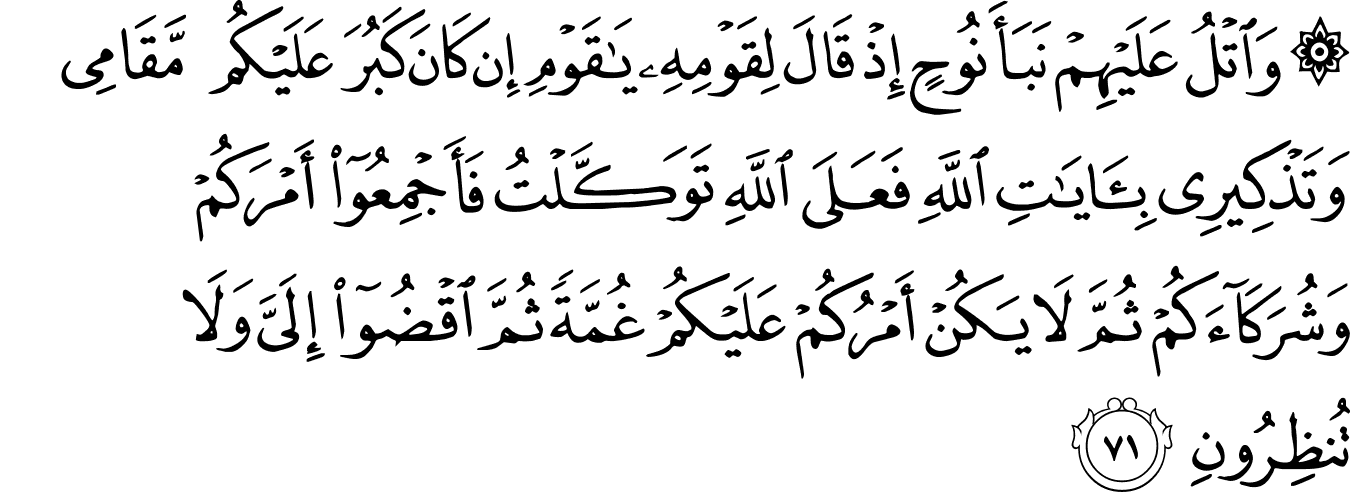 ۞ وَٱتۡلُ عَلَيۡهِمۡ نَبَأَ نُوحٍ إِذۡ قَالَ لِقَوۡمِهِۦ يَٰقَوۡمِ إِن كَانَ كَبُرَ عَلَيۡكُم مَّقَامِي
وَتَذۡكِيرِي بِـَٔايَٰتِ ٱللَّهِ فَعَلَى ٱللَّهِ تَوَكَّلۡتُ فَأَجۡمِعُوٓاْ أَمۡرَكُمۡ
وَشُرَكَآءَكُمۡ ثُمَّ لَا يَكُنۡ أَمۡرُكُمۡ عَلَيۡكُمۡ غُمَّةٗ ثُمَّ ٱقۡضُوٓاْ إِلَيَّ وَلَا
تُنظِرُونِ ٧١